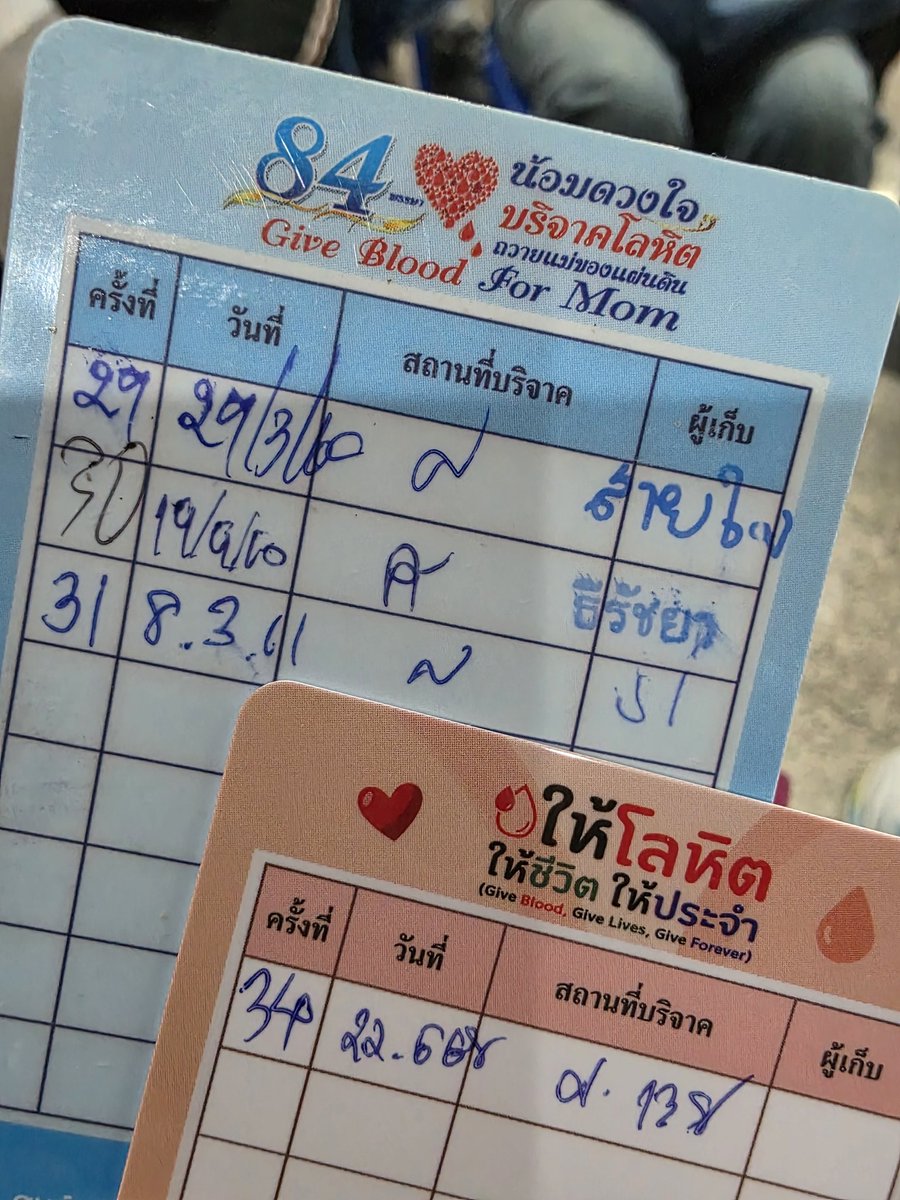 84 พรรษา
น้อมดวงใจ
บริจาคโลหิต
ถวายแม่ของแผ่นดิน
Give Blood For Mom
ครั้งที่ วันที่ สถานที่บริจาค ผู้เก็บ
29 29/3/60 ศ สายใจ
30 19/9/60 ศ ธีรัชยา
31 8.3.61 ศ
ให้โลหิต
ให้ชีวิต ให้ประจำ
(Give Blood, Give Lives, Give Forever)
ครั้งที่ วันที่ สถานที่บริจาค ผู้เก็บ
34 22.6 68